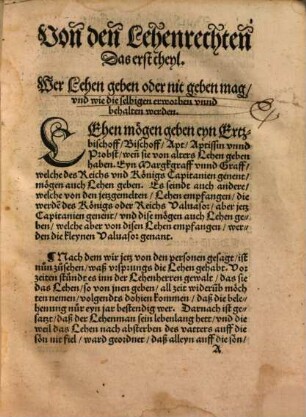 Von den Lehenrechten
Das erst theyl.
Wer Lehen geben oder nit geben mag/
vnd wie die selbigen erworben vnnd
behalten werden.
LEhen mögen geben eyn Ertz-
bischoff/Bischoff/Apt/Aptissin vnnd
Probst/wen sie von alters Lehen geben
haben. Eyn Marggraff vnnd Graff/
welche des Reichs vnd Königs Capitanien genent/
mögen auch Lehen geben. Es seindt auch andere/
welche von den jetzgenelten Lehen empfangen/ die
werdē des Königs oder Reichs Valuasor/aber jetz
Capitanien genent/vnd dise mögen auch Lehen ge-
ben/ welche aber von disen Lehen empfangen/ wer-
den die kleynen Valuasor genant.
Nach dem wir jetz von den personen gesagt/ist
nun zůsehen/waß vrsprungs die Lehen gehabt. Vor
zeiten stůnde es inn der Lehenherren gewalt/das sie
das Lehen/so von jnen geben/all zeit widerüb möch
ten nemen/volgendts dohien kommen/daß die bele-
henung nür eyn jar bestendig wer. Darnach ist ge-
satzt/daß der Lehenman sein lebenlang hett/vnd die
weil das Lehen nach absterben des vatters auff die
sön nit fiel/ward geordnet/daß alleyn auff die sön/
A